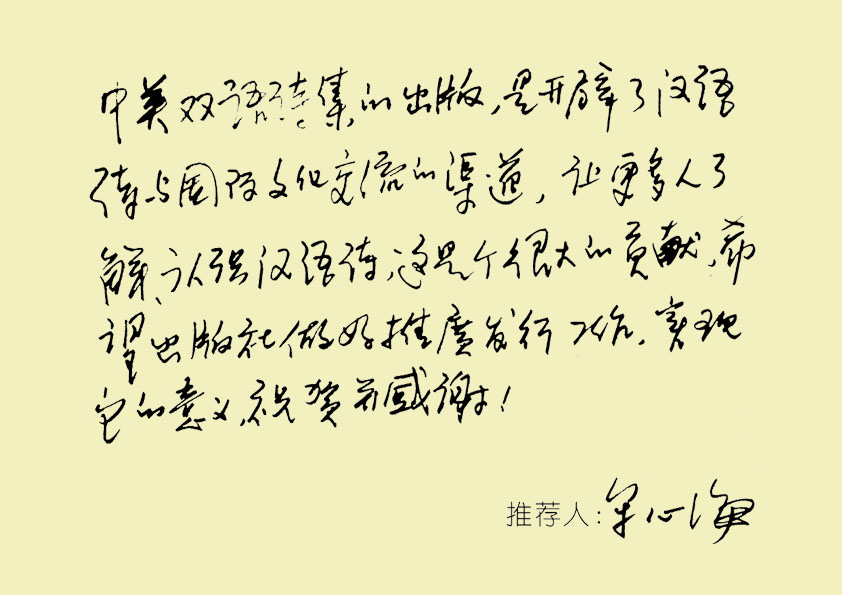 中英双语诗集的出版,是开辟了汉语
诗与国际文化交流的渠道,让更多人了
解、认识汉语诗,这是个很大的贡献,希
望出版社做好推廣发行工作,实现
它的意义,祝贺并感谢!
推荐人:宋心海